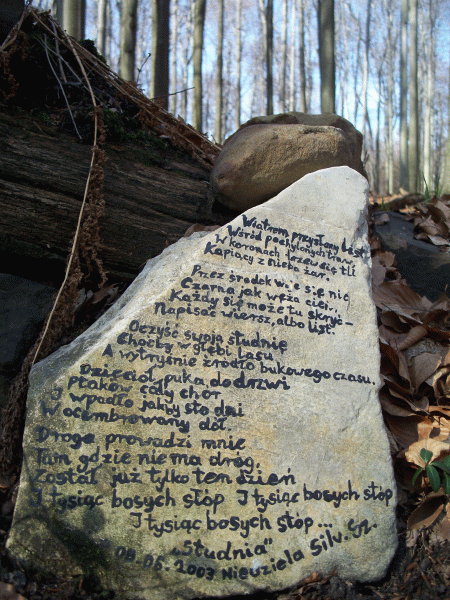 Wiatrem przysłany list
Wśród pochylonych traw,
W koronach drzew się tli
Kapiący z nieba żar.
Przez środek wije się nić
Czarna jak węża cień,
Każdy się może tu skryć-
Napisać wiersz, albo list.
Oczyść swoją studnię
Choćby w głębi lasu
A wytryśnie źródło bukowego czasu.
Dzięcioł puka do drzwi
I ptaków cały chór
I wpadło jakby sto dni
W ocembrowany dół.
Droga prowadzi mnie
Tam gdzie nie ma dróg,
Został już tylko ten dzień
I tysiąc bosych stóp I tysiąc bosych stóp
I tysiąc bosych stóp...
„Studnia"
09.05.2003 Nieuziela Silv. Gr.